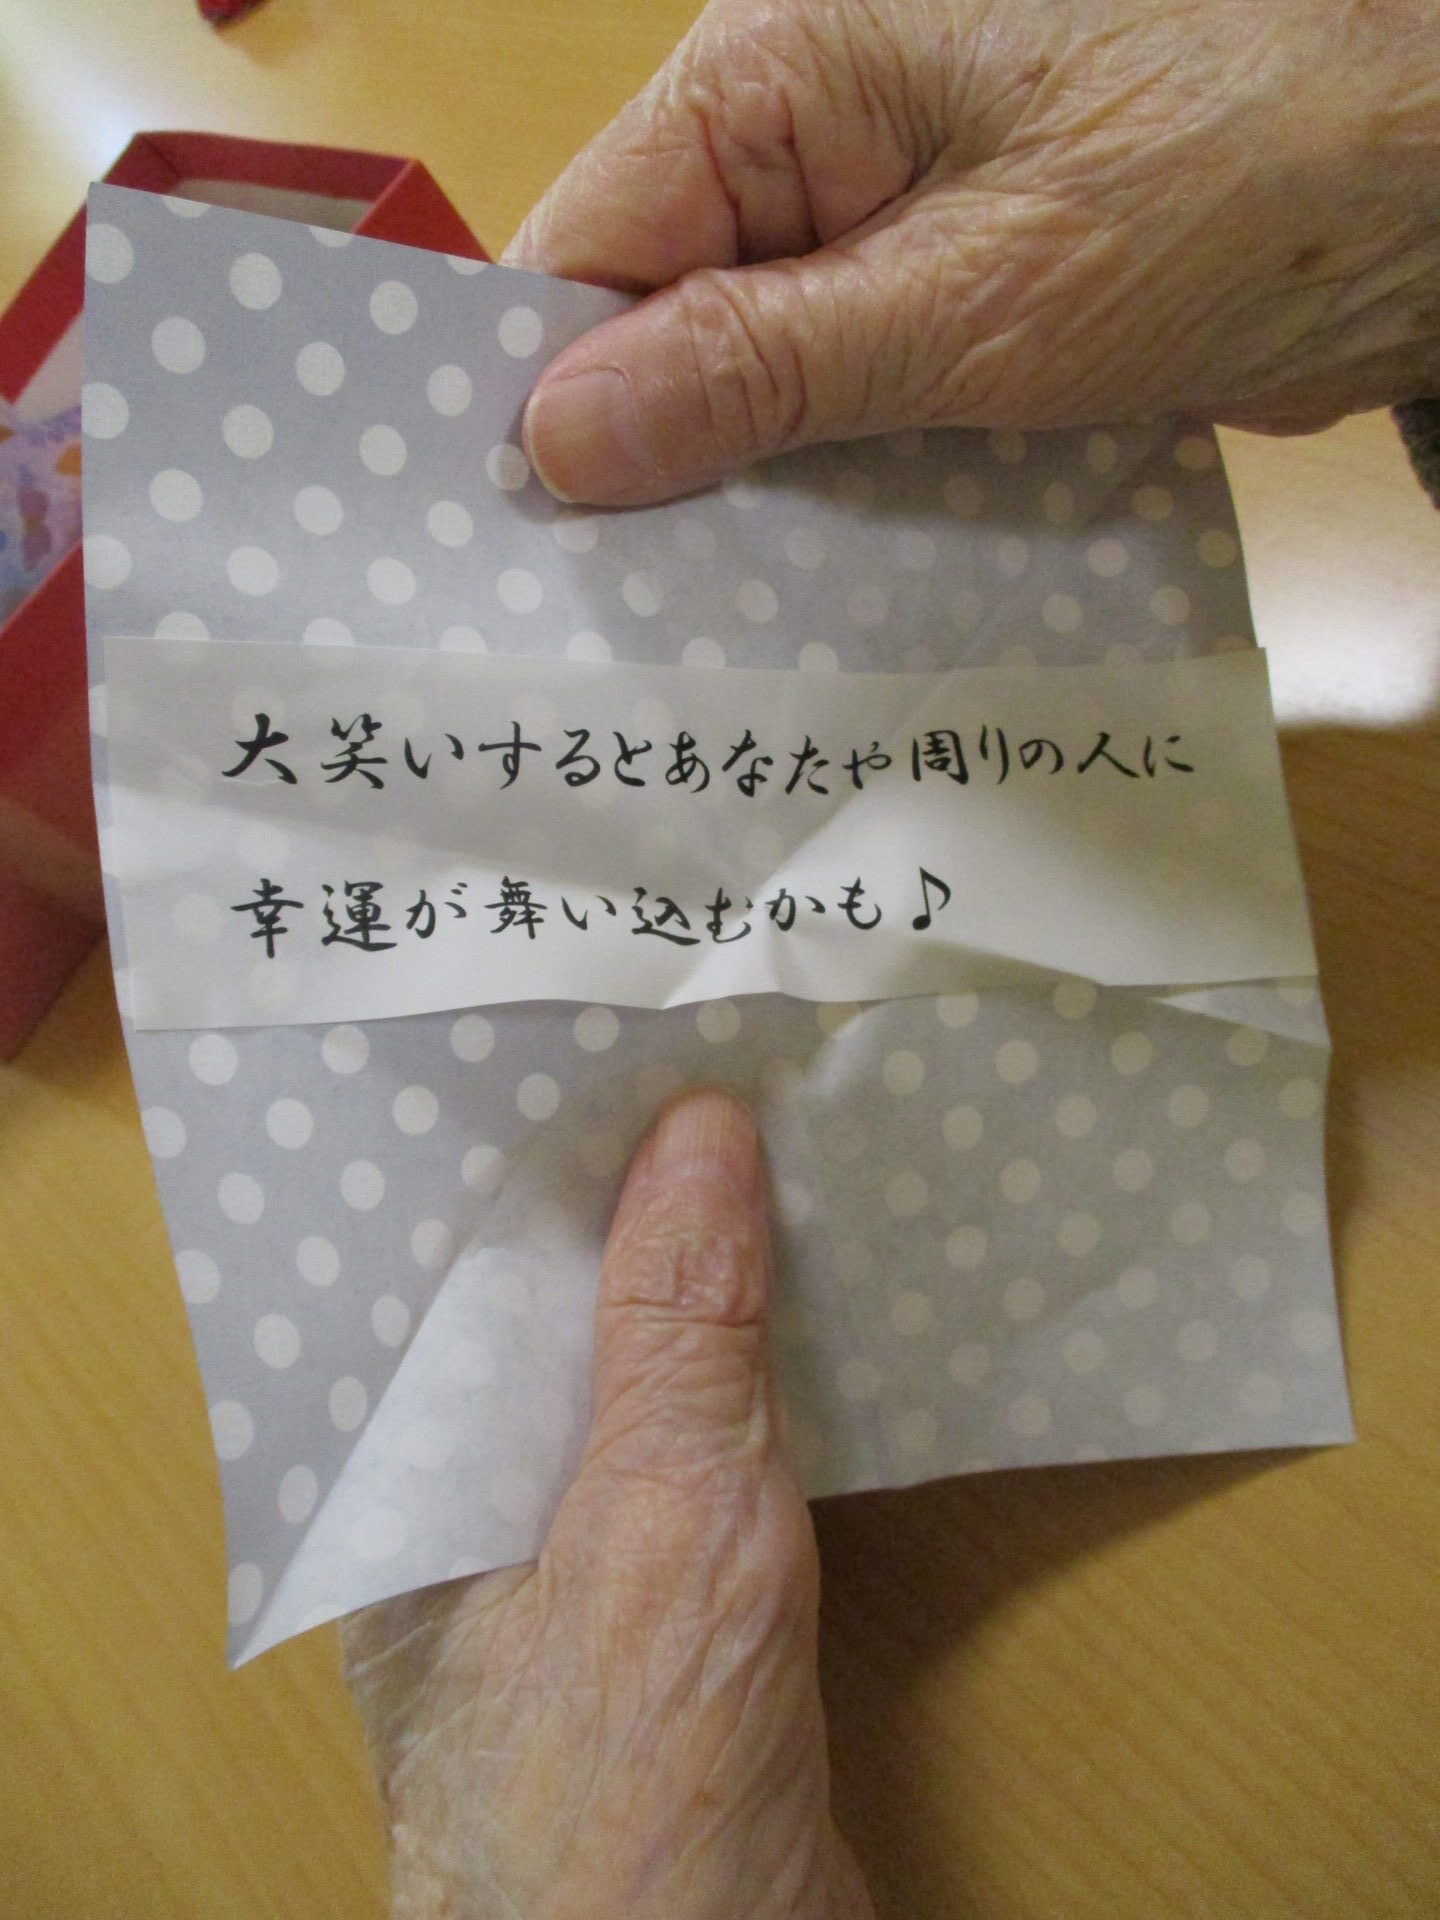 大笑いするとあなたや周りの人に
幸運が舞い込むかも♪